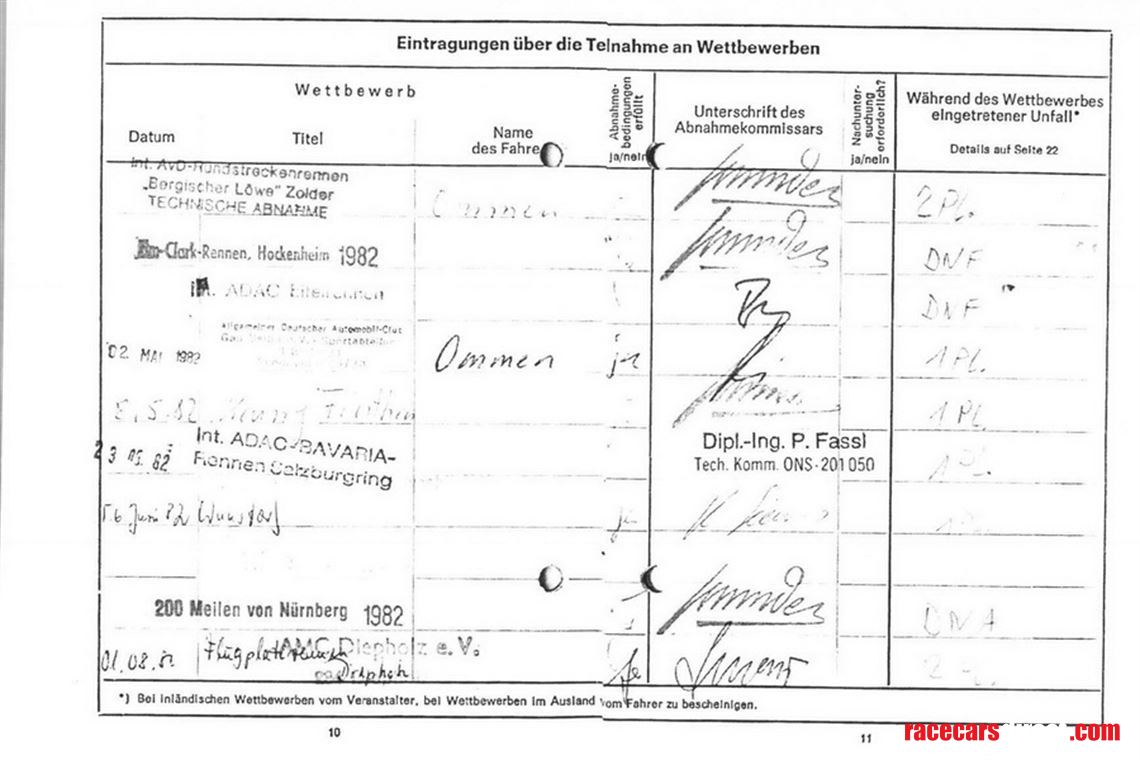 Eintragungen über die Teilnahme an Wettbewerben
Wettbewerb
Datum
Titel
Name
des Fahre
Abnahme-
bedingungen
erfüllt
ja/nein
Unterschrift des
Abnahmekommissars
Nachunter-
suchung
erforderlich?
ja/nein
Während des Wettbewerbes
eingetretener Unfall*
Details auf Seite 22
Int. AvD-Rundstreckenrennen
„Bergischer Löwe" Zolder
TECHNISCHE ABNAHME
Ommen
2 Pl.
-Clark-Rennen, Hockenheim 1982
DNF
ADAC Eifelrennen
DNF
Allgemeiner Deutscher Automobil-Club
02. MAI 1982
Ommen
ja
1 Pl.
8.5.82
1 Pl.
23 05. 82
Int. ADAC-BAVARIA-
Rennen Salzburgring
Dipl.-Ing. P. Fassl
Tech. Komm. ONS-201 050
1 Pl.
Juni 82 Wunstorf
200 Meilen von Nürnberg 1982
DNA
AMC Diepholz e.V.
01.08.82
*) Bei inländischen Wettbewerben vom Veranstalter, bei Wettbewerben im Ausland vom Fahrer zu bescheinigen.
10
11
racecars
.com